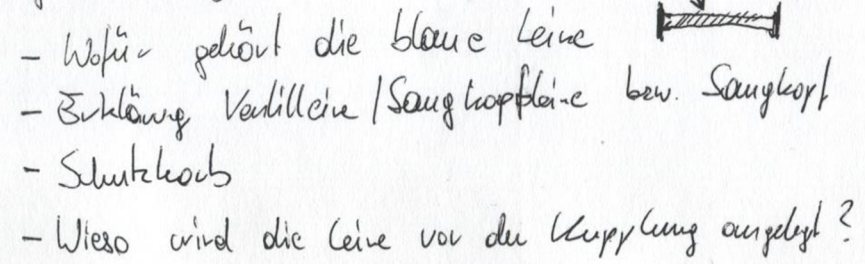 - Wofür gehört die blaue Leine
- Erklärung Ventilleine / Saugkopfleine bzw. Saugkopf
- Schutzkorb
- Wieso wird die Leine vor der Kupplung angelegt?